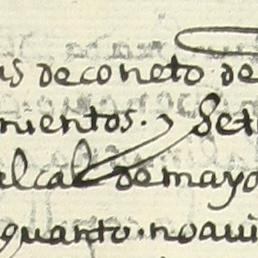 us de coneto de
mientos. y Set
alcalde mayo
quanto. no aui